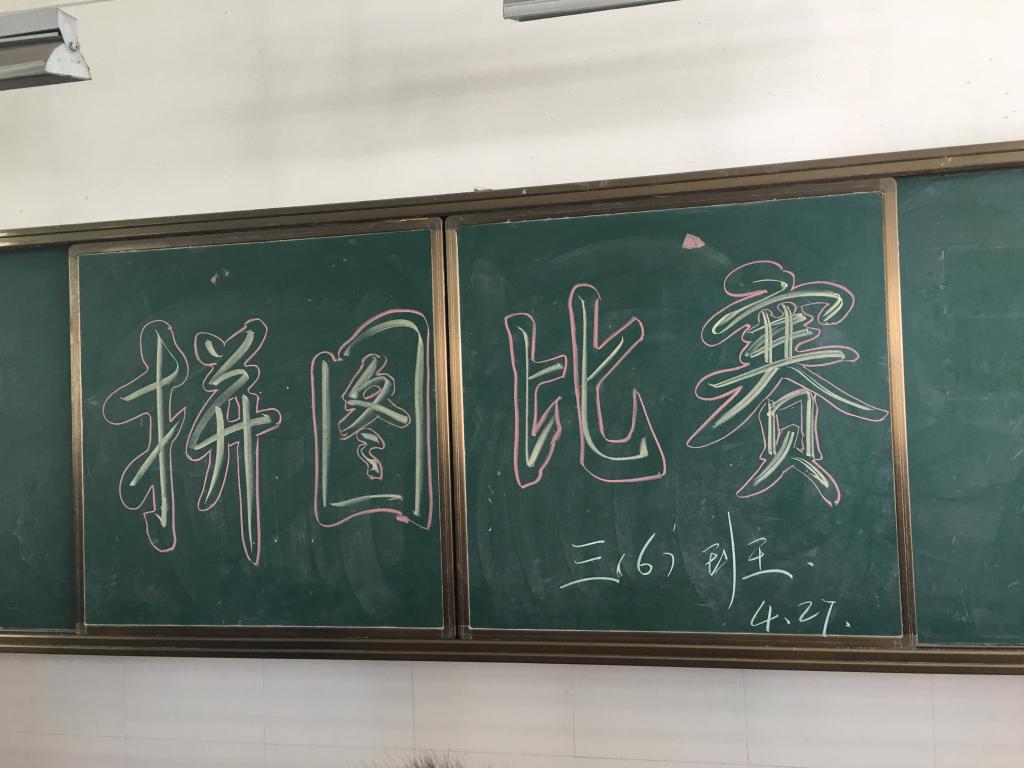 拼图比赛
三(6)班
4.27.